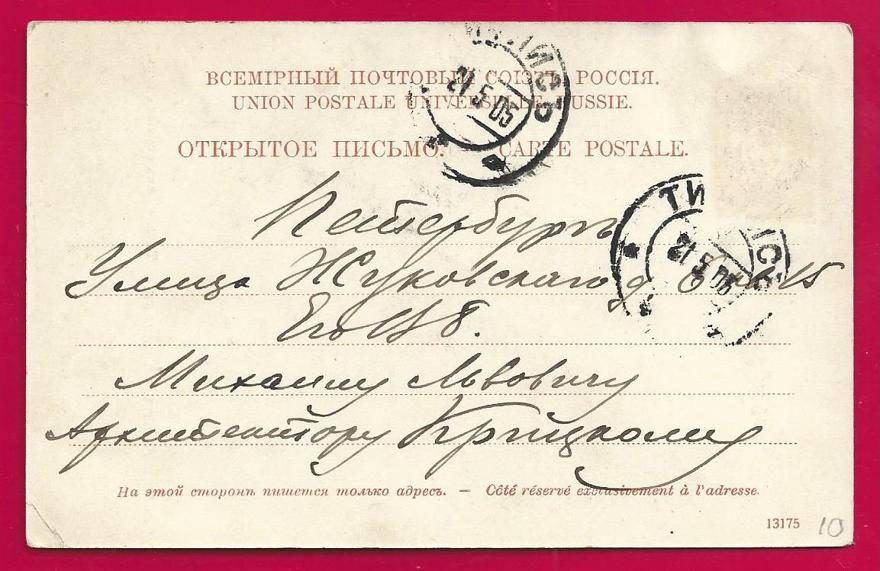 ВСЕМІРНЫЙ ПОЧТОВЫЙ СОЮЗЪ. РОССІЯ.
UNION POSTALE UNIVERSELLE. RUSSIE.
ОТКРЫТОЕ ПИСЬМО. — CARTE POSTALE.
21 5 05
ТИ ИСЪ
21 5 05
Петербургъ
Улица Жуковскаго д 15
Его
Михаилу Львовичу
Архитектору Крицкому
На этой сторонѣ пишется только адресъ. — Côté réservé exclusivement à l'adresse.
13175
10